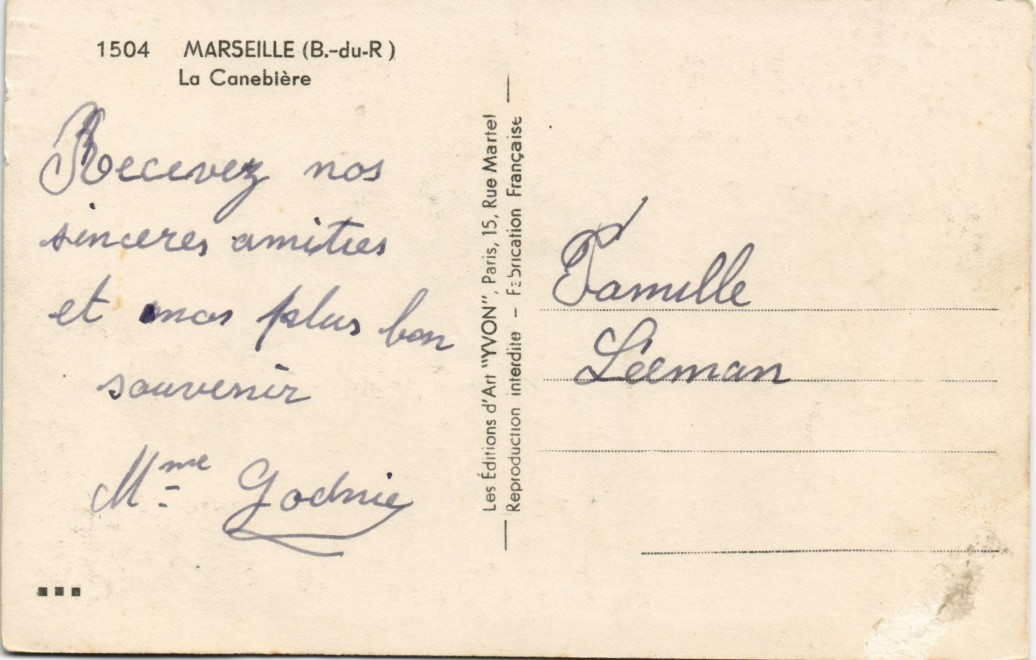 1504 MARSEILLE (B.-du-R )
La Canebière
Recevez nos
sinceres amities
et mos plus bon
souvenir
Mme
Les Éditions d'Art "YVON", Paris, 15, Rue Martel
Reproduction interdite – Fabrication Française
Famille
Léeman